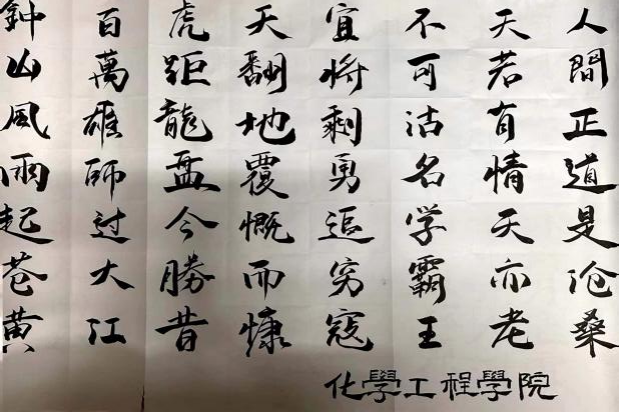 鐘山風雨起苍黄
百萬雄師过大江
虎距龍盘今勝昔
天翻地覆慨而慷
宜将剩勇追穷寇
不可沽名学霸王
天若有情天亦老
人間正道是沧桑
化學工程學院